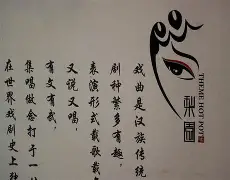 梨園
THEME HOT POT
戏曲是汉族传统
剧种繁多有趣，
表演形式载歌载
又说又唱，
有文有武，
集唱做念打于一
在世界戏剧史上独